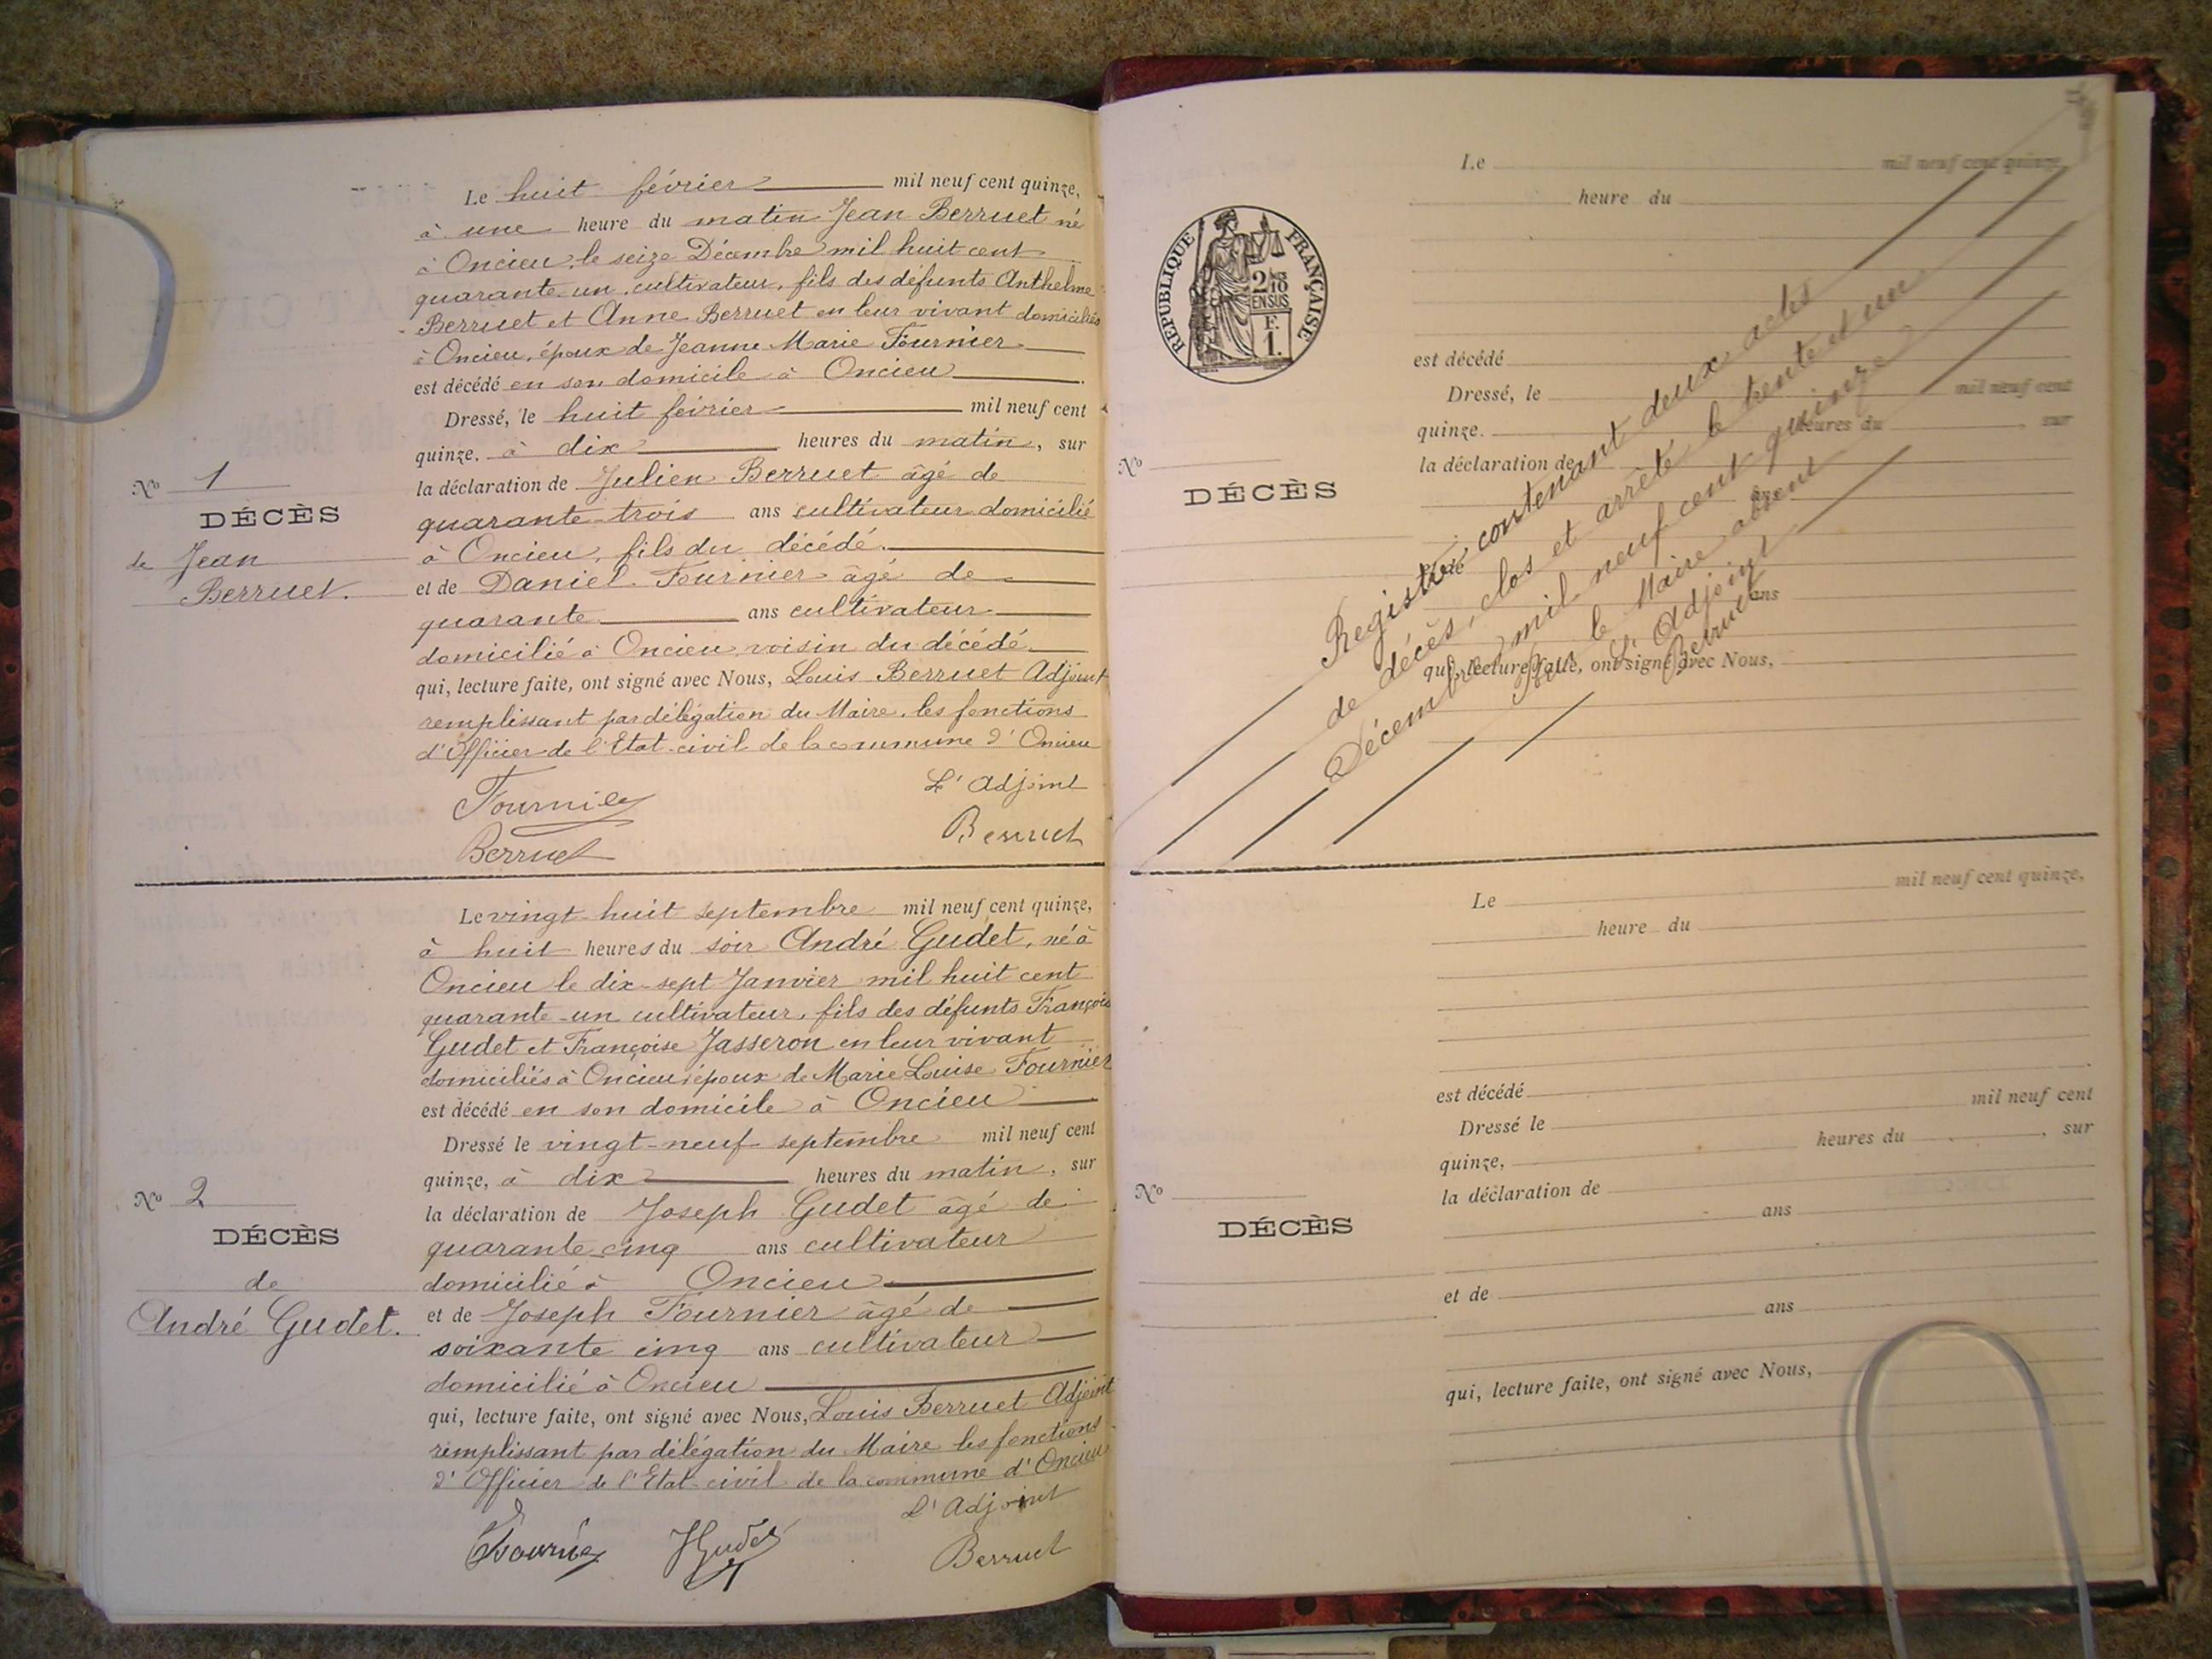 Le huit février mil neuf cent quinze,
à une heure du matin Jean Berruet né
à Oncieu, le seize Décembre mil huit cent
quarante-un, cultivateur, fils des défunts Anthelme
Berruet et Anne Berruet en leur vivant domiciliés
à Oncieu, époux de Jeanne Marie Fournier
est décédé en son domicile à Oncieu
Dressé, le huit février mil neuf cent
quinze, à dix heures du matin, sur
la déclaration de Julien Berruet âgé de
quarante-trois ans cultivateur domicilié
à Oncieu, fils du décédé.
et de Daniel Fournier âgé de
quarante ans cultivateur
domicilié à Oncieu, voisin du décédé
qui, lecture faite, ont signé avec Nous, Louis Berruet Adjoint
remplissant par délégation du Maire, les fonctions
d'Officier de l'Etat-civil de la commune d'Oncieu
Fournier
L'Adjoint
Berruet
Berruet
No 1
DÉCÈS
de Jean
Berruet.
Le vingt-huit septembre mil neuf cent quinze,
à huit heures du soir André Gudet, né à
Oncieu le dix-sept Janvier mil huit cent
quarante-un cultivateur, fils des défunts François
Gudet et Françoise Jasseron en leur vivant
domiciliés à Oncieu, époux de Marie Louise Fournier
est décédé en son domicile à Oncieu
Dressé le vingt-neuf septembre mil neuf cent
quinze, à dix heures du matin, sur
la déclaration de Joseph Gudet âgé de
quarante-cinq ans cultivateur
domicilié à Oncieu
et de Joseph Fournier âgé de
soixante cinq ans cultivateur
domicilié à Oncieu
qui, lecture faite, ont signé avec Nous, Louis Berruet Adjoint
remplissant par délégation du Maire les fonctions
d'Officier de l'Etat-civil de la commune d'Oncieu
L'Adjoint
JGudet
Berruet
No 2
DÉCÈS
de
André Gudet.
RÉPUBLIQUE FRANÇAISE
2/10
EN SUS
F.
1.
Le mil neuf cent quinze,
heure du
est décédé
Dressé, le mil neuf cent
quinze. heures du , sur
la déclaration de
ans
et de
ans
qui, lecture faite, ont signé avec Nous,
No
DÉCÈS
Registre contenant deux actes
de décès, clos et arrêté le trente et un
Décembre mil neuf cent quinze
Pour le Maire absent
L'Adjoint
Berruet
Le mil neuf cent quinze,
heure du
est décédé
Dressé le mil neuf cent
quinze, heures du , sur
la déclaration de
ans
et de
ans
qui, lecture faite, ont signé avec Nous,
No
DÉCÈS